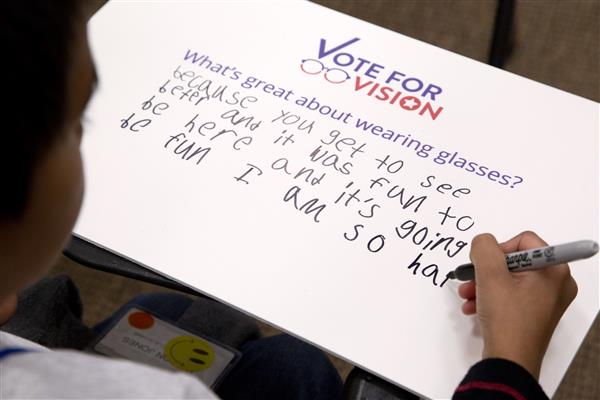 VOTE FOR
VISION
What's great about wearing glasses?
because you get to see
better and it was fun to
be here and it's going
be fun I am so hap
Sharpie
ON JONES